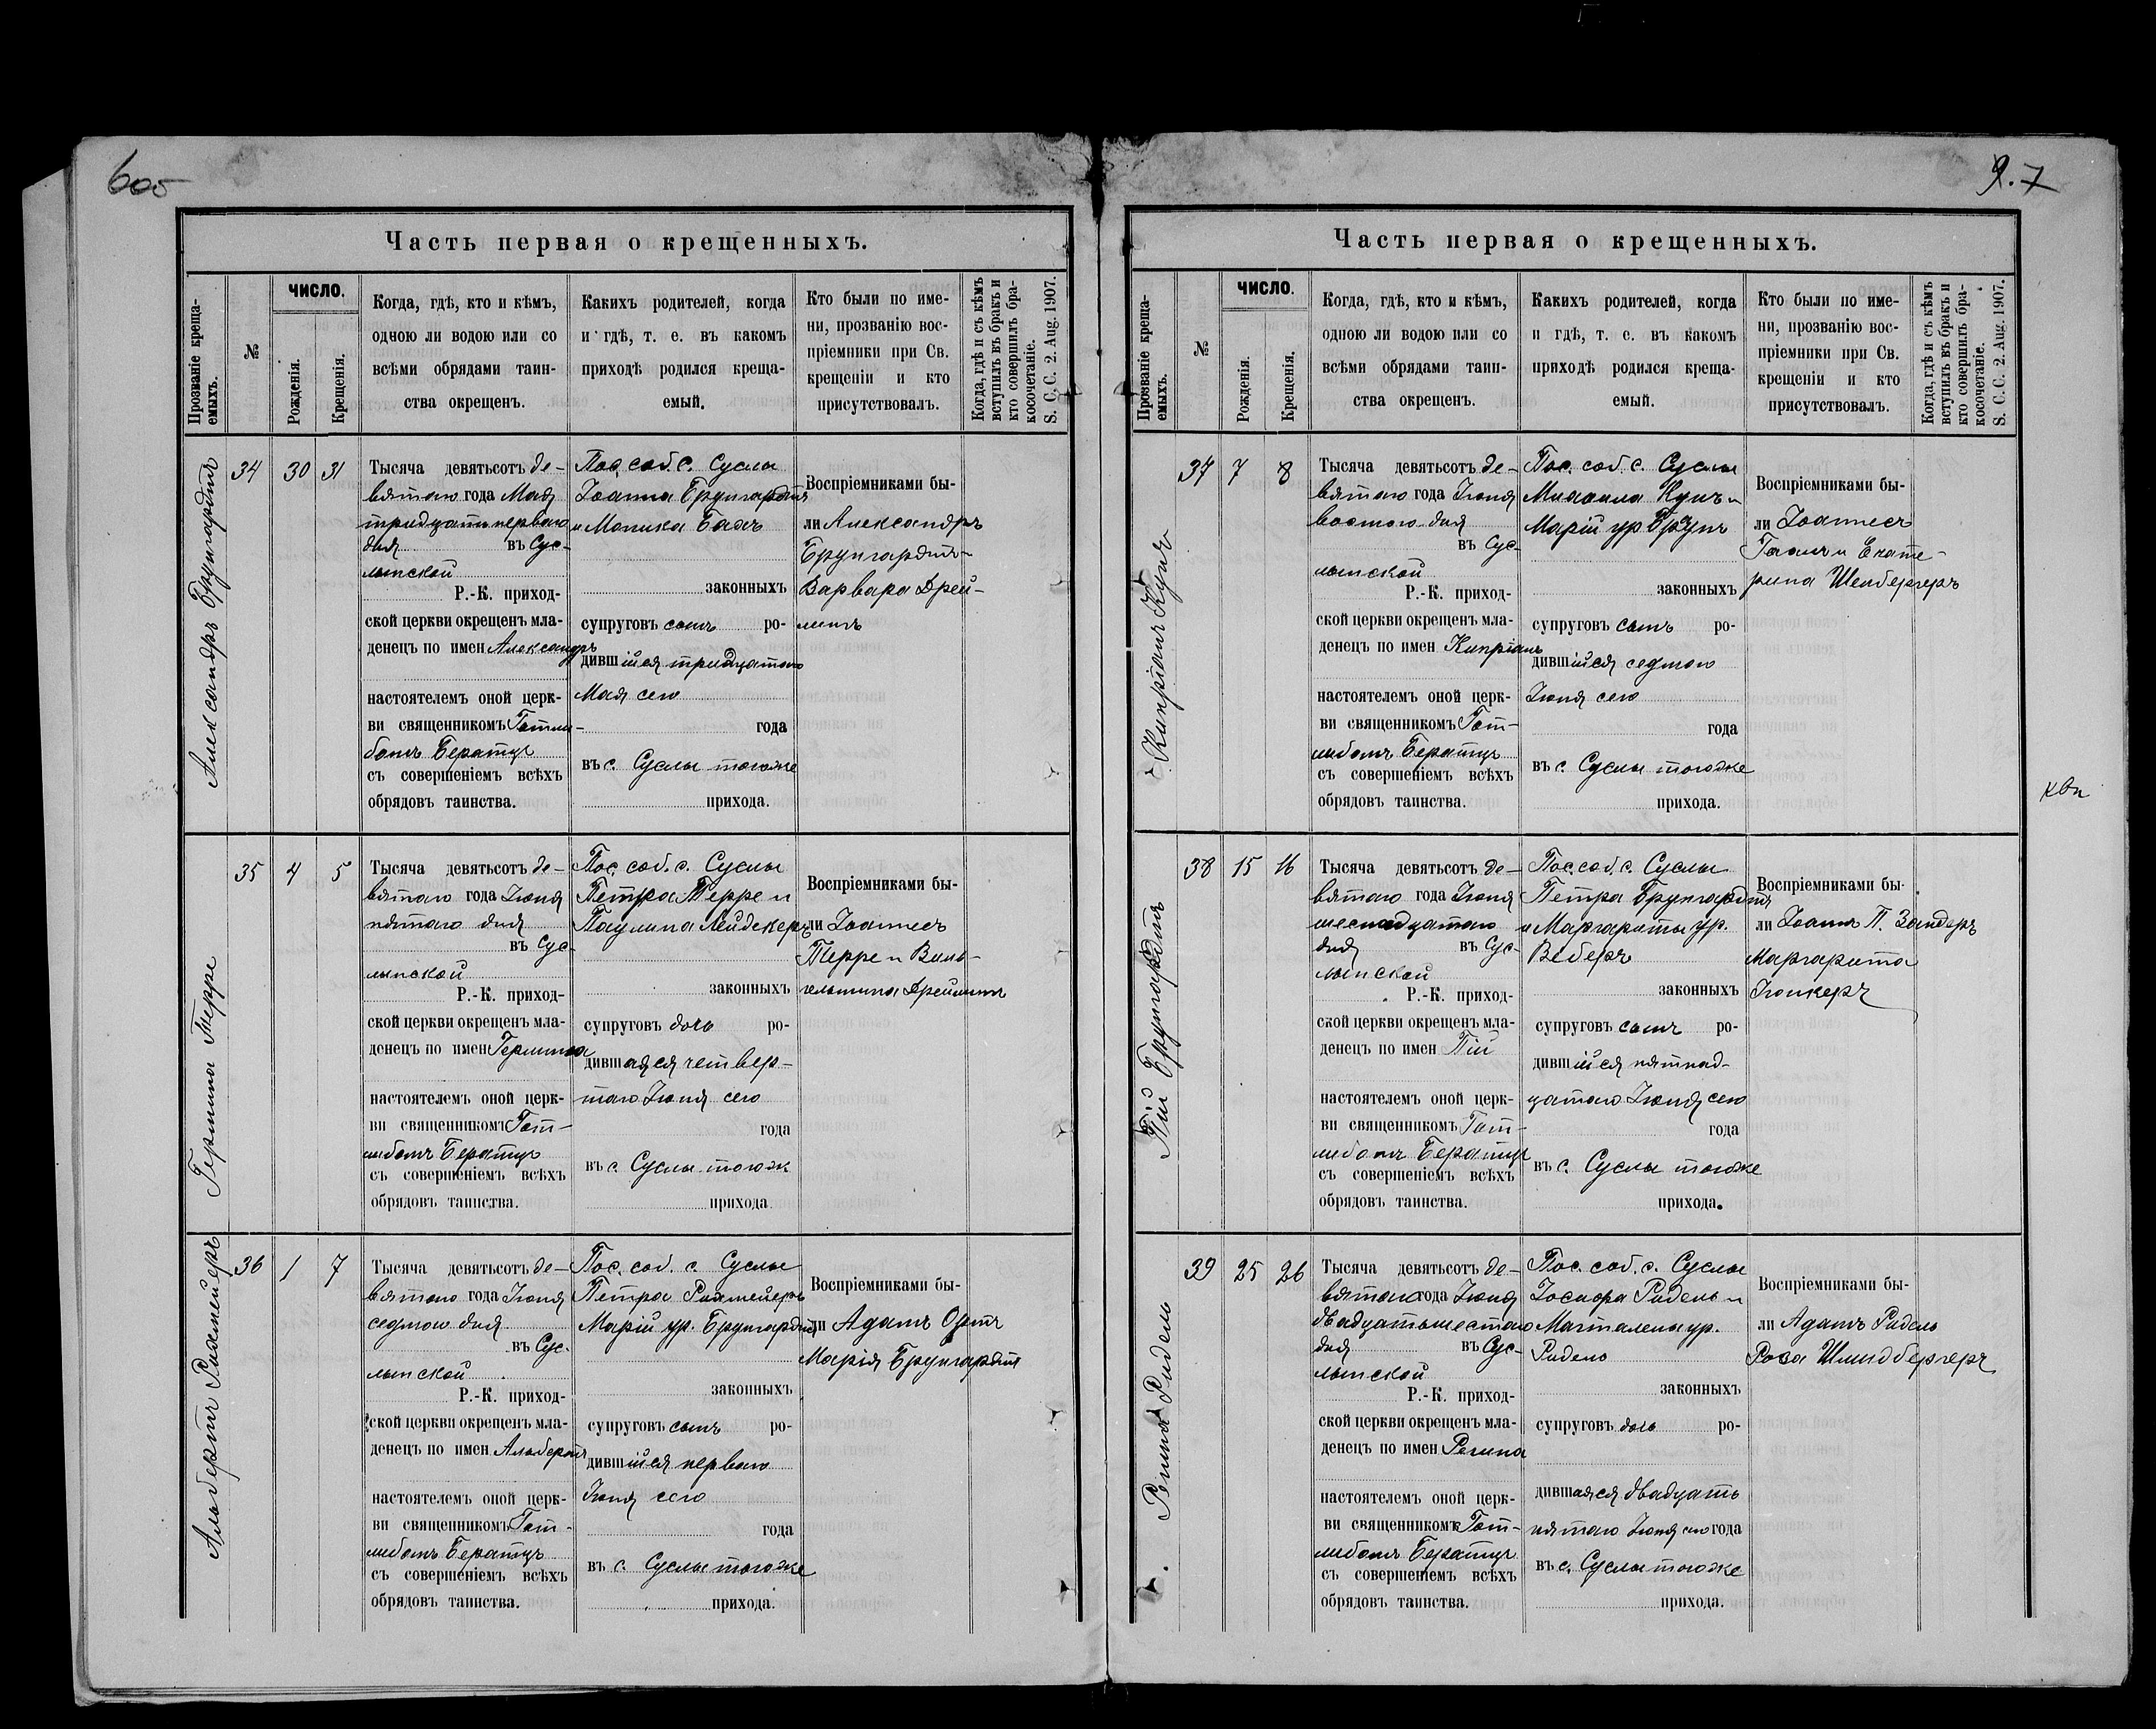 600
Часть первая о крещенныхъ.
Прозваніе креща-
емыхъ.
№
ЧИСЛО.
Рожденія.
Крещенія.
Когда, гдѣ, кто и кѣмъ,
одною ли водою или со
всѣми обрядами таин-
ства окрещенъ.
Какихъ родителей, когда
и гдѣ, т. е. въ какомъ
приходѣ родился креща-
емый.
Кто были по име-
ни, прозванію вос-
пріемники при Св.
крещеніи и кто
присутствовалъ.
Когда, гдѣ и съ кѣмъ
вступилъ въ бракъ и
кто совершилъ бра-
косочетаніе.
S. C. C. 2. Aug. 1907.
Александръ Брунгардтъ
34
30
31
Тысяча девятьсотъ де-
вятаго года Мая
тридцать перваго
дня въ Сус-
лынской
Р.-К. приход-
ской церкви окрещенъ мла-
денецъ по имен Александръ
настоятелемъ оной церк-
ви священникомъ Готли-
бомъ Бератцъ
съ совершеніемъ всѣхъ
обрядовъ таинства.
Пос. соб. с. Суслы
Іоанна Брунгардтъ
и Моника Бахъ
законныхъ
супруговъ сынъ ро-
дившійся тридцатого
Мая сего
года
въ с. Суслы тогоже
прихода.
Воспріемниками бы-
ли Александръ
Брунгардтъ
Варвара Дрей-
лингъ
Гермина Терре
35
4
5
Тысяча девятьсотъ де-
вятаго года Іюня
пятаго дня
въ Сус-
лынской
Р.-К. приход-
ской церкви окрещенъ мла-
денецъ по имен Гермина
настоятелемъ оной церк-
ви священникомъ Гот-
либомъ Бератцъ
съ совершеніемъ всѣхъ
обрядовъ таинства.
Пос. соб. с. Суслы
Петра Терре и
Паулина Лейдекеръ
законныхъ
супруговъ дочь ро-
дившаяся четвер-
таго Іюня сего
года
въ с. Суслы тогож
прихода
Воспріемниками бы-
ли Іоаннесъ
Терре и Виль-
гельмина Дрейлингъ
Альбертъ Рихмейеръ
36
1
7
Тысяча девятьсотъ де-
вятаго года Іюня
седмого дня
въ Сус-
лынской
Р.-К. приход-
ской церкви окрещенъ мла-
денецъ по имен Альбертъ
настоятелемъ оной церк-
ви священникомъ Гот-
либомъ Бератцъ
съ совершеніемъ всѣхъ
обрядовъ таинства.
Пос. соб. с. Суслы
Петра Рихмейеръ
Маріи ур. Брунгардтъ
законныхъ
супруговъ сынъ ро-
дившійся перваго
Іюня сего
года
въ с. Суслы тогоже
прихода.
Воспріемниками бы-
ли Адамъ
Марія Брунгардтъ
9.7
Часть первая о крещенныхъ.
Прозваніе креща-
емыхъ.
№
ЧИСЛО.
Рожденія.
Крещенія.
Когда, гдѣ, кто и кѣмъ,
одною ли водою или со
всѣми обрядами таин-
ства окрещенъ.
Какихъ родителей, когда
и гдѣ, т. е. въ какомъ
приходѣ родился креща-
емый.
Кто были по име-
ни, прозванію вос-
пріемники при Св.
крещеніи и кто
присутствовалъ.
Когда, гдѣ и съ кѣмъ
вступилъ въ бракъ и
кто совершилъ бра-
косочетаніе.
S. C. C. 2. Aug. 1907.
Кипріанъ Кунъ
37
7
8
Тысяча девятьсотъ де-
вятаго года Іюня
восмого дня
въ Сус-
лынской
Р.-К. приход-
ской церкви окрещенъ мла-
денецъ по имен Кипріанъ
настоятелемъ оной церк-
ви священникомъ Гот-
либомъ Бератцъ
съ совершеніемъ всѣхъ
обрядовъ таинства.
Пос. соб. с. Суслы
Михаила Кунъ и
Маріи ур. Брунъ
законныхъ
супруговъ сынъ ро-
дившійся седмого
Іюня сего
года
въ с. Суслы тогоже
прихода.
Воспріемниками бы-
ли Іоаннесъ
Гаанъ и Екате-
рина Шенбергеръ
Пій Брунгардтъ
38
15
16
Тысяча девятьсотъ де-
вятаго года Іюня
шеснадцатаго
дня въ Сус-
лынской
Р.-К. приход-
ской церкви окрещенъ мла-
денецъ по имен Пій
настоятелемъ оной церк-
ви священникомъ Гот-
либомъ Бератцъ
съ совершеніемъ всѣхъ
обрядовъ таинства.
Пос. соб. с. Суслы
Петра Брунгардтъ
и Маргариты ур.
Веберъ
законныхъ
супруговъ сынъ ро-
дившійся пятнад-
цатаго Іюня сего
года
въ с. Суслы тогоже
прихода.
Воспріемниками бы-
ли Іоаннъ П. Зандеръ
Маргарита
Юнкеръ
Регина Ридель
39
25
26
Тысяча девятьсотъ де-
вятаго года Іюня
двадцатьшестаго
дня въ Сус-
лынской
Р.-К. приход-
ской церкви окрещенъ мла-
денецъ по имен Регина
настоятелемъ оной церк-
ви священникомъ Гот-
либомъ Бератцъ
съ совершеніемъ всѣхъ
обрядовъ таинства.
Пос. соб. с. Суслы
Іосифа Ридель и
Магталены ур.
Ридель
законныхъ
супруговъ дочь ро-
дившаяся двадцать
пятаго Іюня сего года
въ с. Суслы тогоже
прихода.
Воспріемниками бы-
ли Адамъ Ридель
Роза Шмидбергеръ